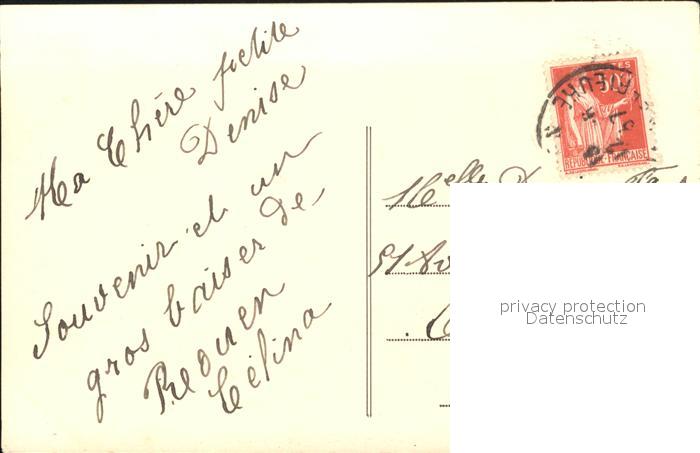 Ma Chère petite
Denise
Souvenir et un
gros baiser de
Rouen
Célina
Melle D
51 Av
RÉPUBLIQUE FRANÇAISE
50
privacy protection
Datenschutz